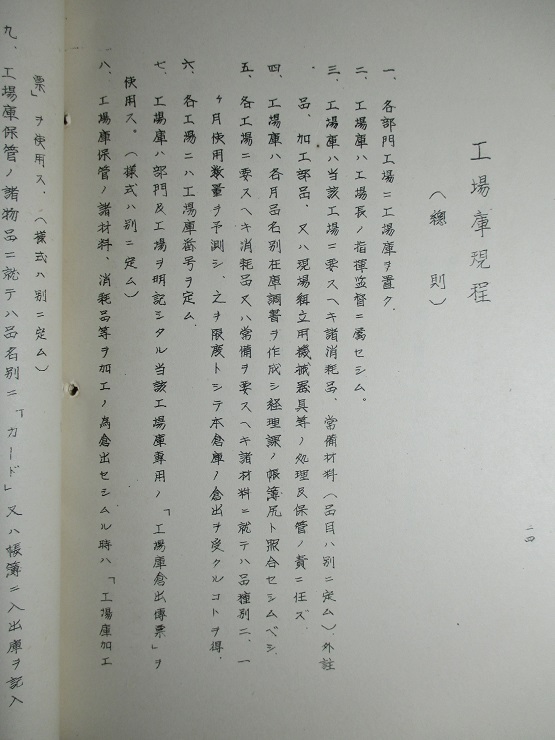 工場庫現程
（總則）
一、各部門工場ニ工場庫ヲ置ク、
二、工場庫ハ工場長ノ指揮監督ニ属セシム。
三、工場庫ハ当該工場ニ要スヘキ諸消耗品、常備材料（品目ハ別ニ定ム）外註
品、加工部品、又ハ現場組立用機械器具等ノ処理及保管ノ責ニ任ズ、
四、工場庫ハ各月品名別在庫調書ヲ作成シ経理課ノ帳簿尻ト照合セシムベシ
五、各工場ニ要スヘキ消耗品又ハ常備ヲ要スヘキ諸材料ニ就テハ品種別ニ、一
ヶ月使用数量ヲ予測シ、之ヲ限度トシテ本倉庫ノ倉出ヲ受クルコトヲ得、
六、各工場ニハ工場庫番号ヲ定ム、
七、工場庫ハ部門及工場ヲ明記シタル当該工場庫専用ノ「工場庫倉出傳票」ヲ
使用ス。（様式ハ別ニ定ム）
八、工場庫保管ノ諸材料、消耗品等ヲ加工ノ為倉出セシムル時ハ「工場庫加工
票」ヲ使用ス、（様式ハ別ニ定ム）
九、工場庫保管ノ諸物品ニ就テハ品名別ニ「カード」又ハ帳簿ニ入出庫ヲ記入
二四